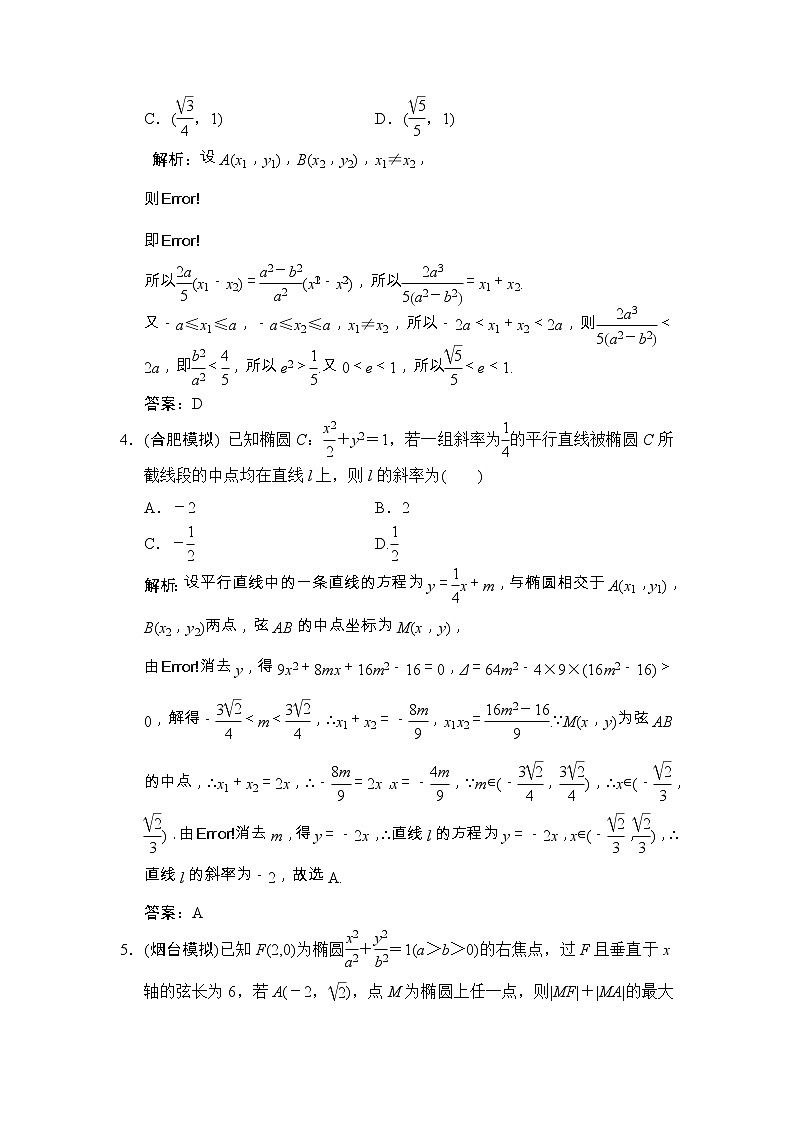 C．(√3/4，1)　　D．(√5/5，1)
解析：设A(x₁，y₁)，B(x₂，y₂)，x₁≠x₂，
则Error!
即Error!
所以2a/5(x₁－x₂)＝a²－b²/a²(x²₁－x²₂)，所以2a³/5(a²－b²)＝x₁＋x₂.
又－a≤x₁≤a，－a≤x₂≤a，x₁≠x₂，所以－2a＜x₁＋x₂＜2a，则2a³/5(a²－b²)＜
2a，即b²/a²＜4/5，所以e²＞1/5.又0＜e＜1，所以√5/5＜e＜1.
答案：D
4．(合肥模拟) 已知椭圆C：x²/2＋y²＝1，若一组斜率为1/4的平行直线被椭圆C所
截线段的中点均在直线l上，则l的斜率为(　　)
A．－2　　B．2
C．－1/2　　D.1/2
解析：设平行直线中的一条直线的方程为y＝1/4x＋m，与椭圆相交于A(x₁，y₁)，
B(x₂，y₂)两点，弦AB的中点坐标为M(x，y)，
由Error!消去y，得9x²＋8mx＋16m²－16＝0，Δ＝64m²－4×9×(16m²－16)＞
0，解得－3√2/4＜m＜3√2/4，∴x₁＋x₂＝－8m/9，x₁x₂＝16m²－16/9.∵M(x，y)为弦AB
的中点，∴x₁＋x₂＝2x，∴－8m/9＝2x，x＝－4m/9，∵m∈(－3√2/4，3√2/4)，∴x∈(－√2/3，
√2/3)．由Error!消去m，得y＝－2x，∴直线l的方程为y＝－2x，x∈(－√2/3，√2/3)，∴
直线l的斜率为－2，故选A.
答案：A
5．(烟台模拟)已知F(2,0)为椭圆x²/a²＋y²/b²＝1(a＞b＞0)的右焦点，过F且垂直于x
轴的弦长为6，若A(－2，√2)，点M为椭圆上任一点，则|MF|＋|MA|的最大